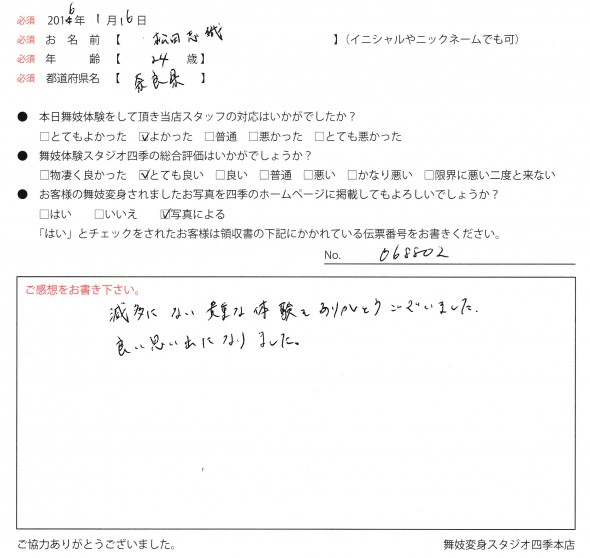 必須 2016年 1月16日
必須 お 名 前 【 松田 】(イニシャルやニックネームでも可)
必須 年 齢 【 24 歳】
必須 都道府県名 【 奈良県 】
● 本日舞妓体験をして頂き当店スタッフの対応はいかがでしたか?
□とてもよかった ☑よかった □普通 □悪かった □とても悪かった
● 舞妓体験スタジオ四季の総合評価はいかがでしょうか?
□物凄く良かった ☑とても良い □良い □普通 □悪い □かなり悪い □限界に悪い二度と来ない
● お客様の舞妓変身されましたお写真を四季のホームページに掲載してもよろしいでしょうか?
□はい □いいえ ☑写真による
「はい」とチェックをされたお客様は領収書の下記にかかれている伝票番号をお書きください。
No. 068802
ご感想をお書き下さい。
滅多にない貴重な体験をありがとうございました.
良い思い出になりました。
ご協力ありがとうございました。 舞妓変身スタジオ四季本店